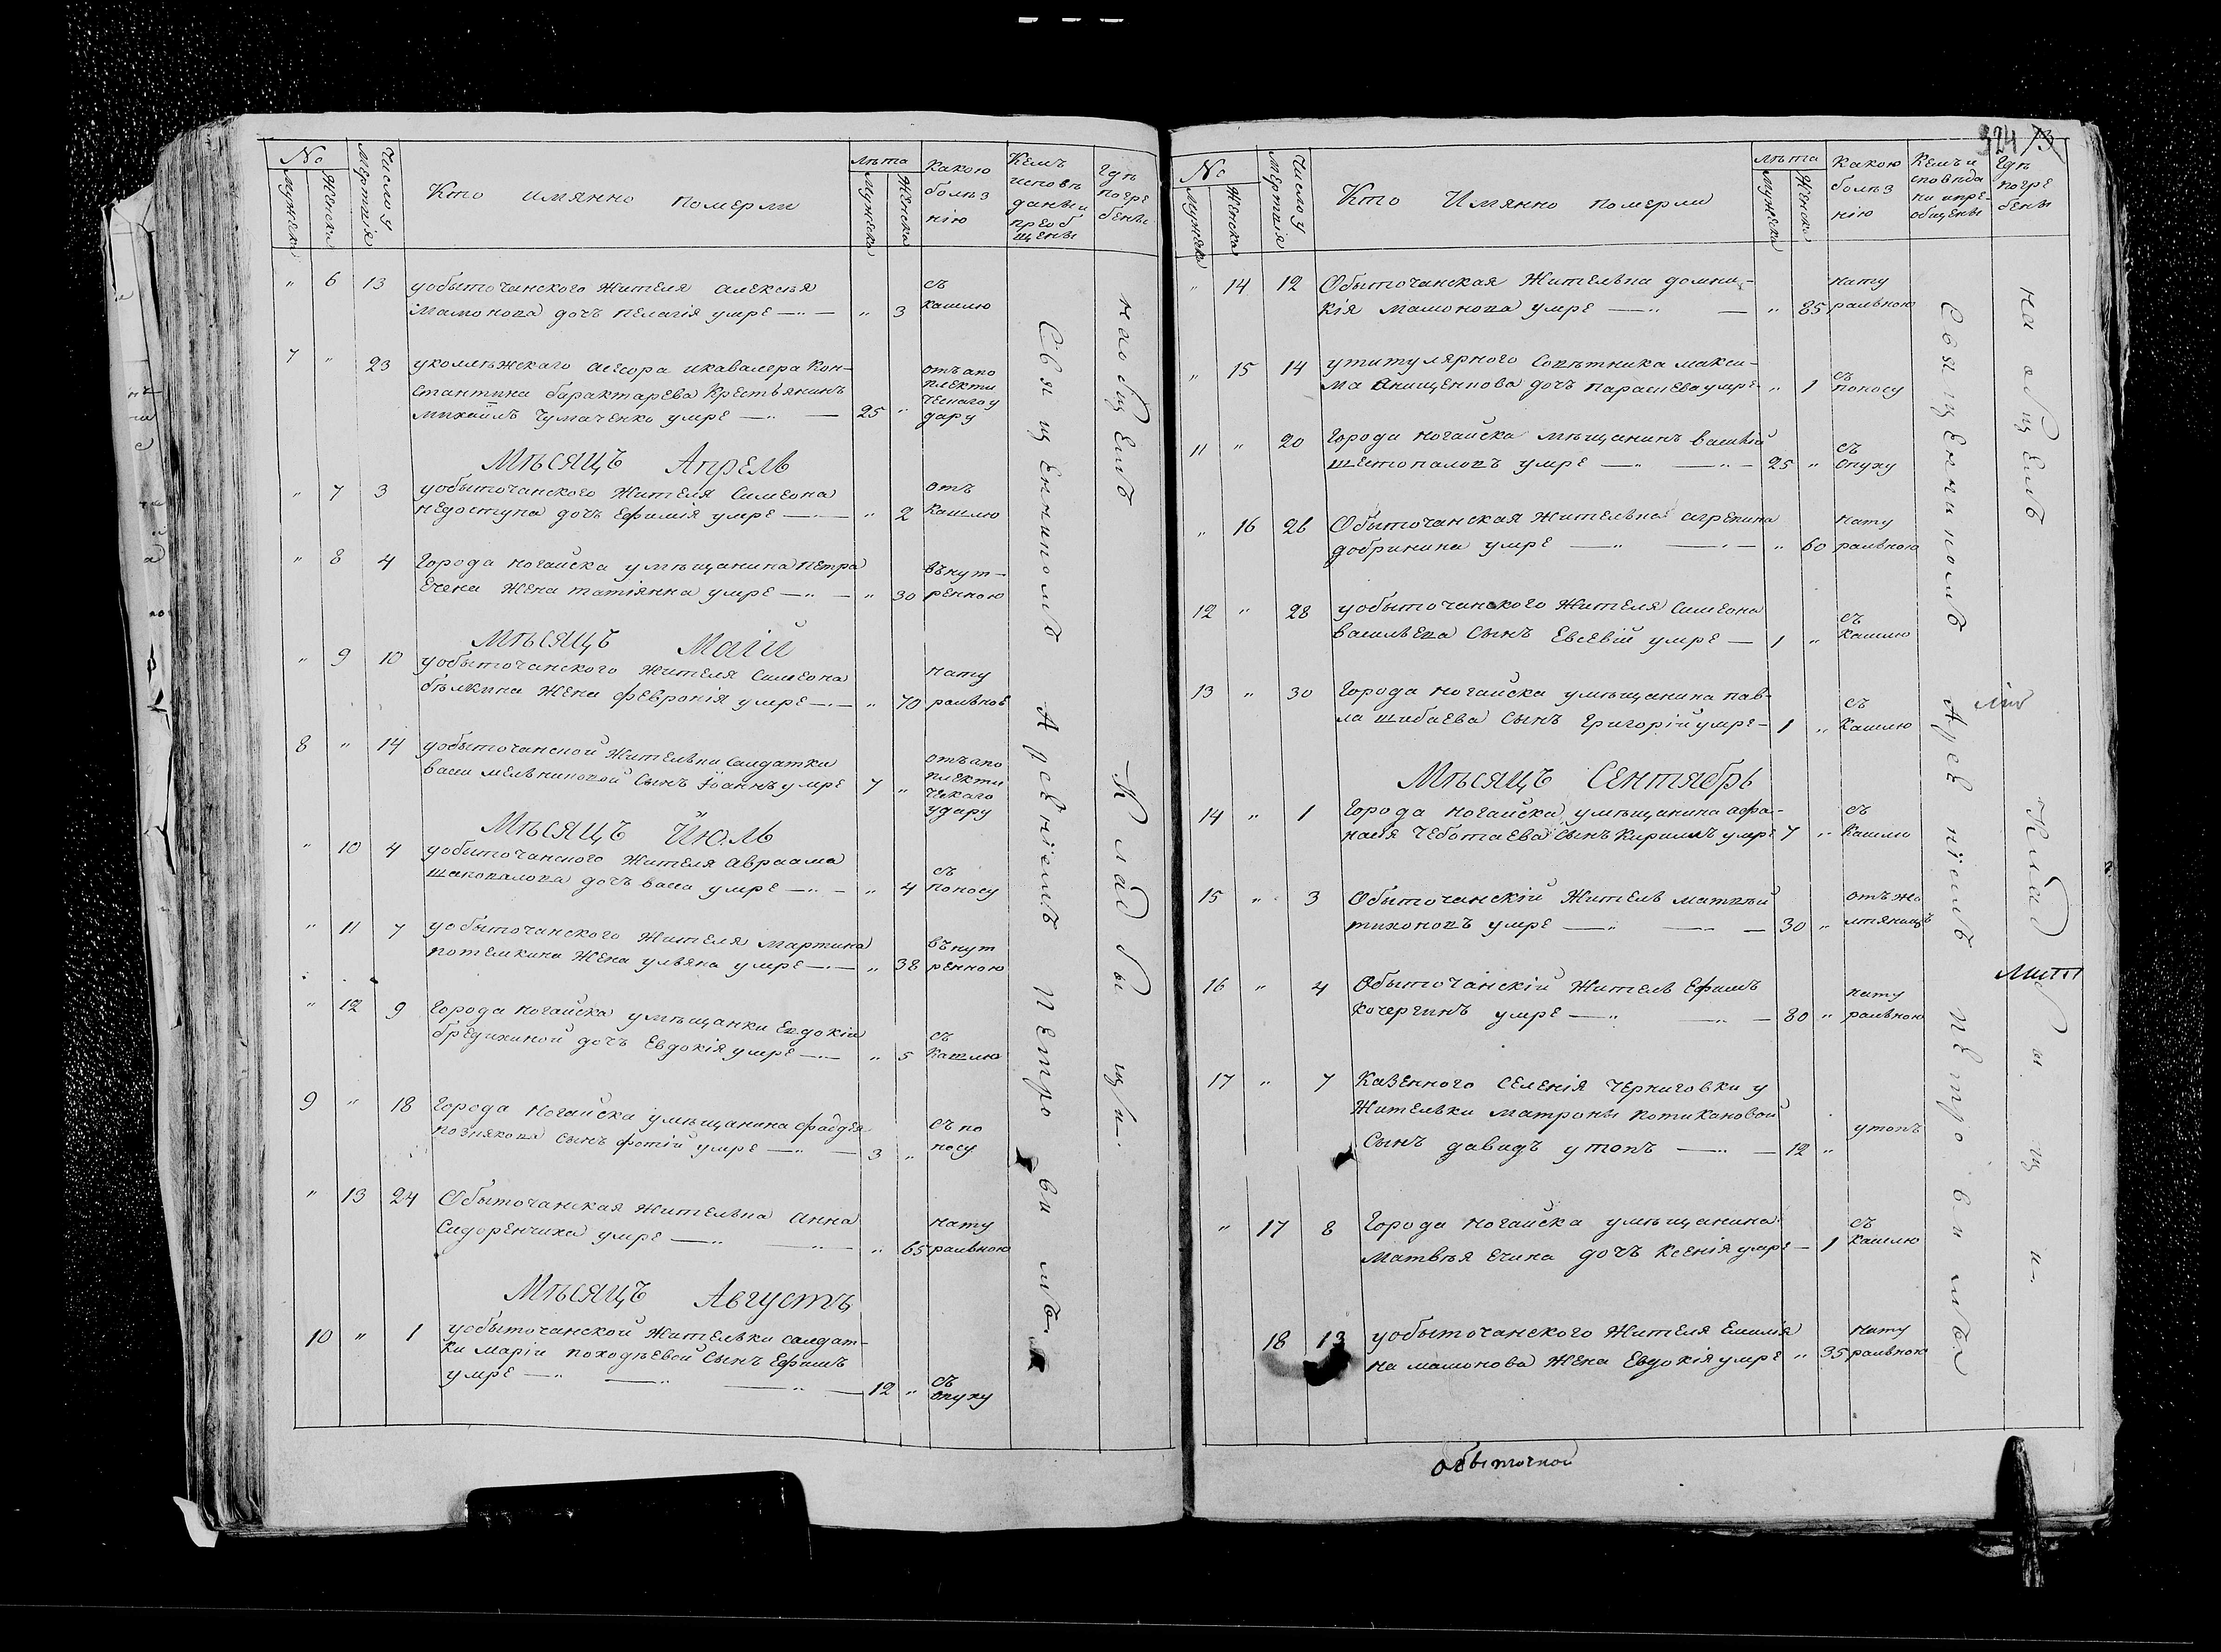 №
Мужска
Женска
Число у
мертвія
Кто имянно померли
лѣта
Мужска
Женска
Какою
болѣз
нію
Кемъ
исповѣ
даны и
преоб
щены
Гдѣ
погре
бены
" 6 13 уобыточанского Жителя алексея
Мамонова дочъ пелагія умре " 3 съ кашлю
7 " 23 уколѣжскаго асесора икавалера Кон-
стантина барактарева Крестьянинъ
михаилъ Чумаченко умре 25 " отъапо
плекти
ческагоу
дару
Мѣсяцъ Апрель
" 7 3 уобыточанского Жителя Симеона
недоступа дочъ Ефимія умре " 2 отъ кашлю
" 8 4 Города ногайска умѣщанина петра
Ечена Жена татіянна умре " 30 вънут-
ренною
Мѣсяцъ Маій
" 9 10 уобыточанского Жителя Симеона
бѣлкина Жена февронія умре " 70 нату
ральною
8 " 14 уобыточанской Жительки Салдатки
васи мельниковой Сынъ Іоаннъ умре 7 " отъапо
плекти
ческаго
удару
Мѣсяцъ Йюль
" 10 4 уобыточанского Жителя Авраама
шаповалова дочъ васа умре " 4 съ поносу
" 11 7 уобыточанского Жителя Мартина
потемкина Жена ульяна умре " 38 вънут
ренною
" 12 9 Города ногайска умѣщанки Евдокіи
бредихиной дочъ Евдокія умре " 5 съ Кашлю
9 " 18 Города ногайска умѣщанина фаддея
познякова Сынъ фотій умре 3 " съ по
носу
" 13 24 Обыточанская Жителька Анна
Сидоренчиха умре " 65 нату
ральною
Мѣсяцъ Августъ
10 " 1 уобыточанской Жительки салдат-
ки Маріи походѣевой Сынъ Ефимъ
умре 12 " съ
опуху
Священникомъ Арсѣніемъ Петровимъ.
Наобщемъ Кладбищи.
324 13
№
Мужска
Женска
Число у
мертвія
Кто Имянно померли
лѣта
Мужска
Женска
Какою
болѣз
нію
Кемъ и
сповѣда
ны ипре-
общены
Гдѣ
погре
бены
" 14 12 Обыточанская Жителька домни-
кія Мамонова умре " 85 нату
ральною
" 15 14 утитулярного Совѣтника макси-
ма Анищенкова дочъ Параскева умре " 1 съ
поносу
11 " 20 Города ногайска мѣщанинъ василій
шестопаловъ умре 25 " съ
опуху
" 16 26 Обыточанская Жителька агрепина
добринина умре " 60 нату
ральною
12 " 28 уобыточанского Жителя Симеона
васильева Сынъ Евсевій умре 1 " съ
кашлю
13 " 30 Города ногайска умѣщанина пав-
ла шибаева Сынъ Григорій умре 1 " съ
Кашлю
Мѣсяцъ Сентябрь
14 " 1 Города ногайска умѣщанина афа-
насія Чеботаева Сынъ Кирилъ умре 7 " съ
Кашлю
15 " 3 Обыточанскій Житель матвѣй
тихоновъ умре 30 " отъ жо
лтяницѣ
16 " 4 Обыточанскій Житель Ефимъ
Кочергинъ умре 80 " нату
ральною
17 " 7 Казенного Селенія Черниговки у
Жительки матроны потикановой
Сынъ давидъ утопъ 12 " утопъ
" 17 8 Города ногайска умѣщанина
Матвѣя Ечина дочъ Ксенія умре 1 съ
Кашлю
18 13 уобыточанского Жителя Емилія
на мамонова Жена Евдокія умре " 35 нату
ральною
Священникомъ Арсѣніемъ Петровимъ
На общемъ Кладбищи.
обыточной